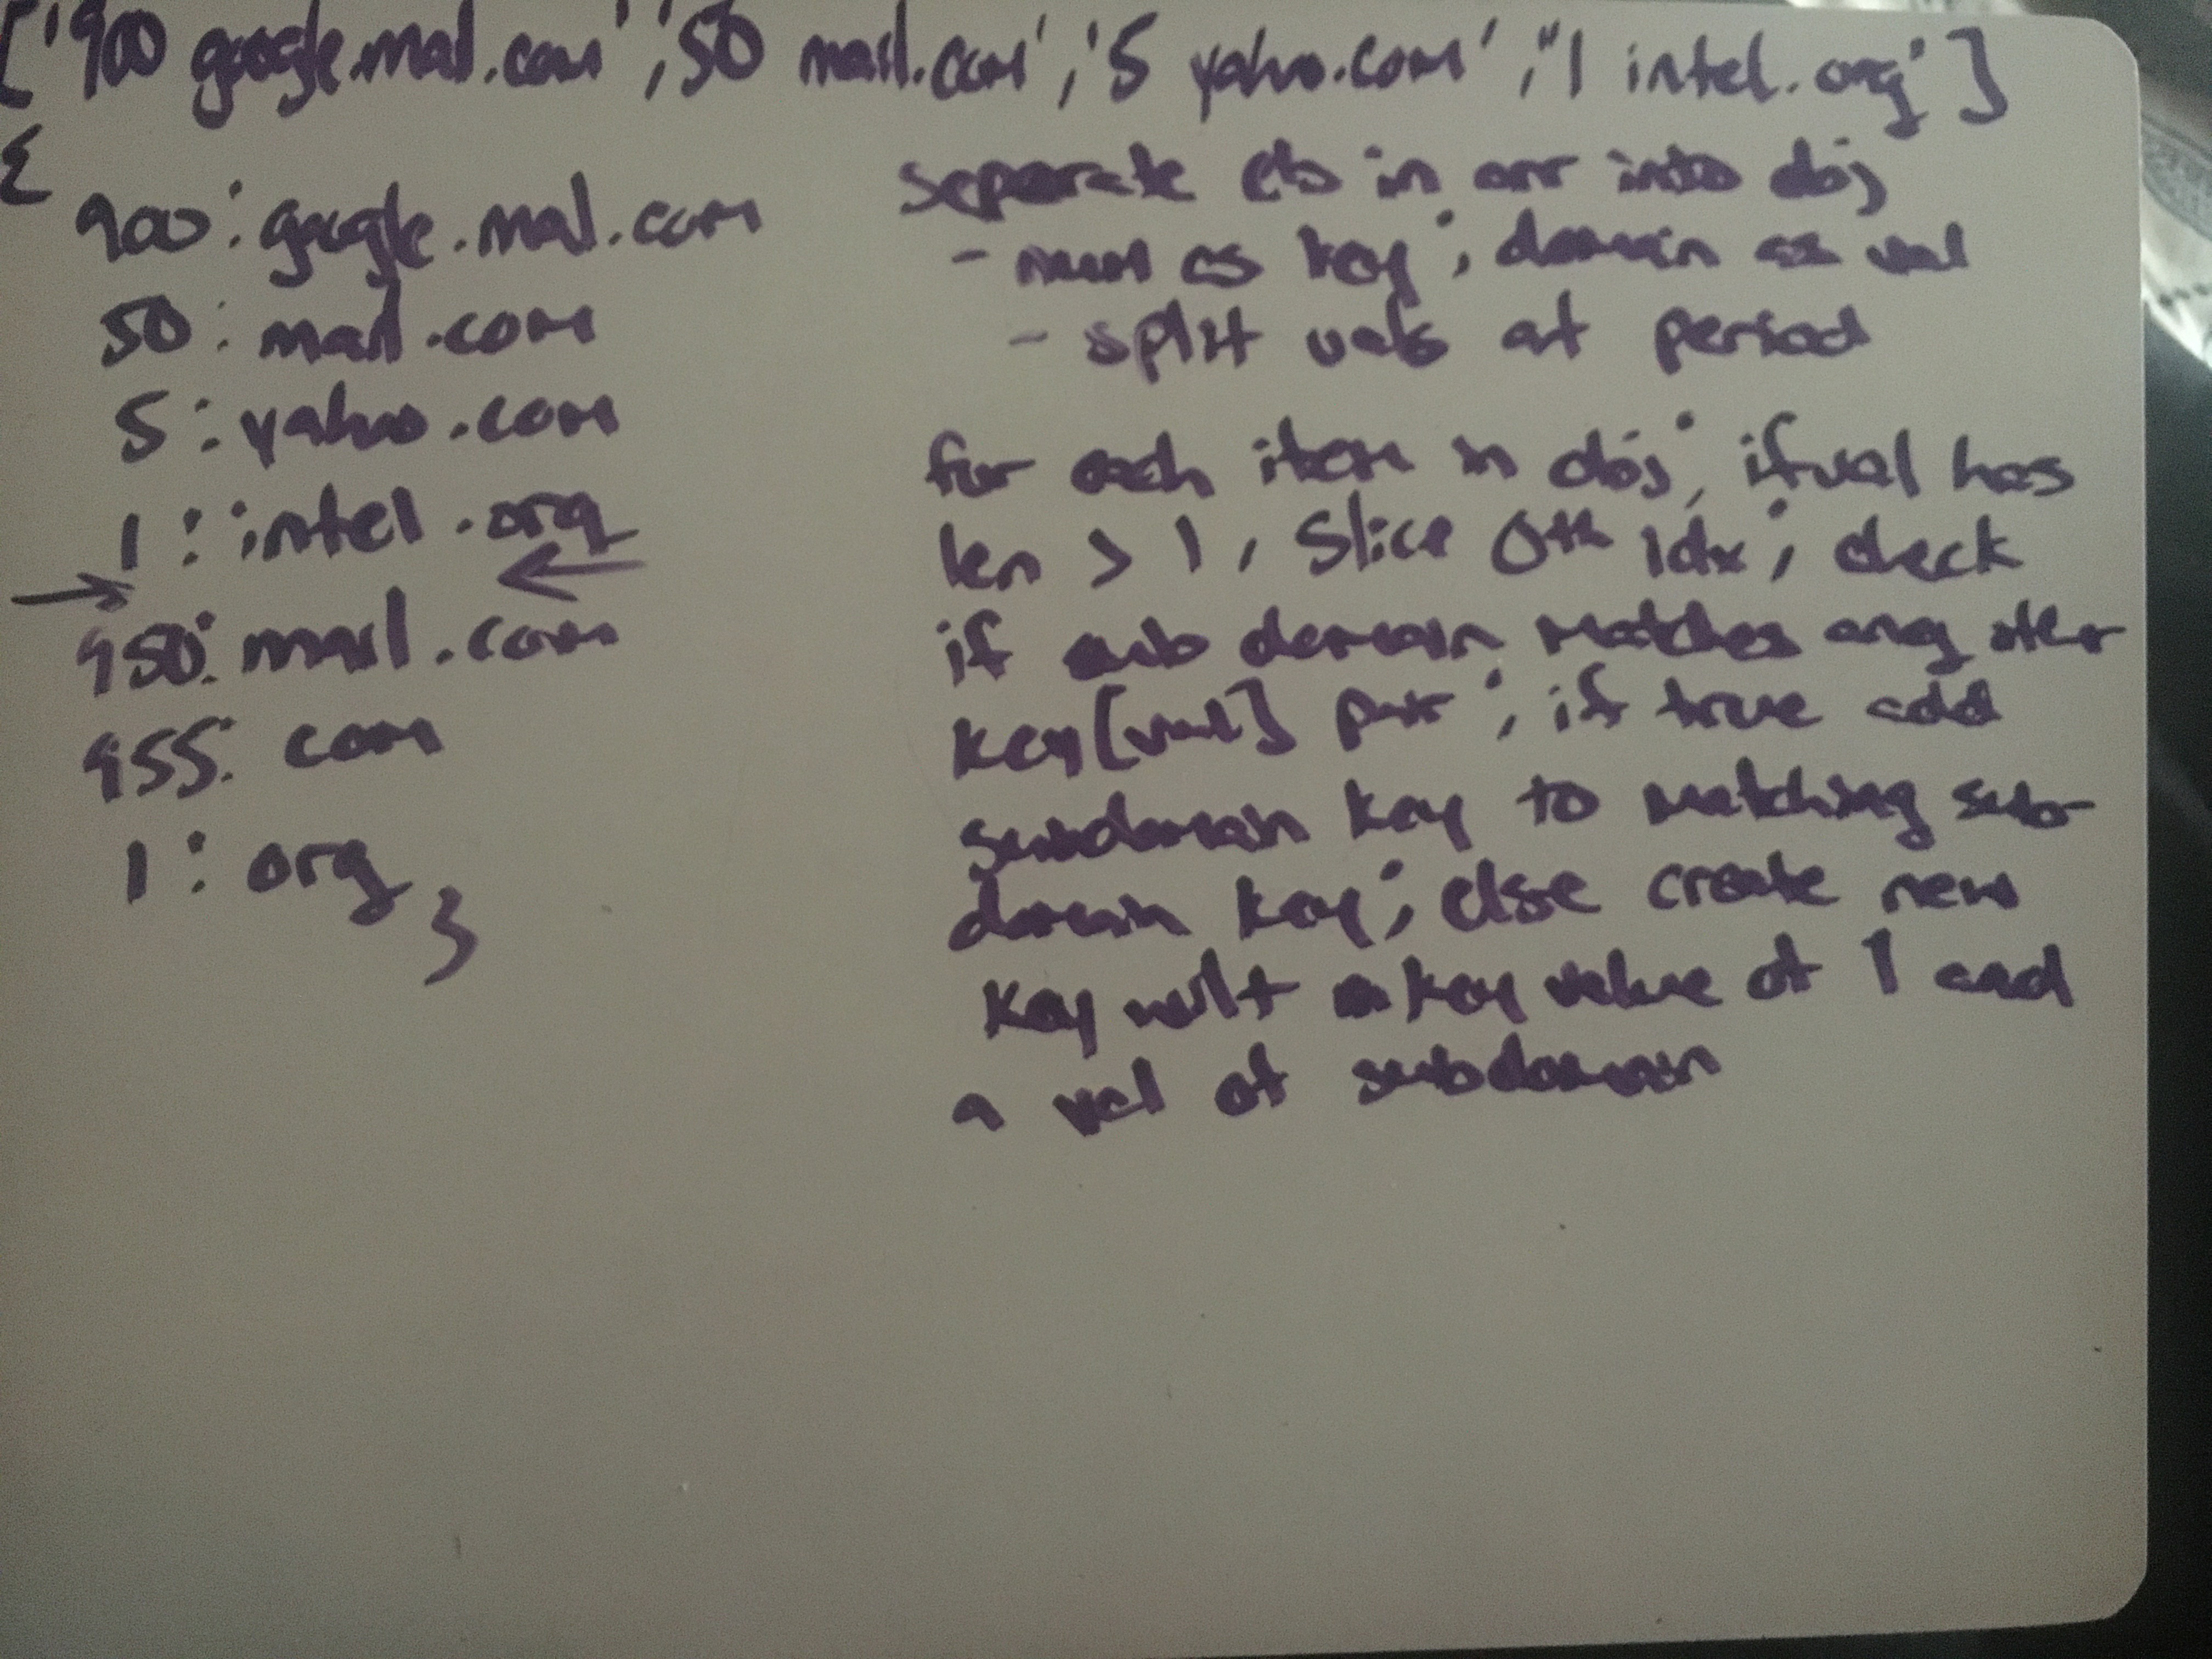 ['900 google.mail.com','50 mail.com','5 yahoo.com',"1 intel.org']
{
900: google.mail.com
50: mail.com
5: yahoo.com
1: intel.org
→ ←
950: mail.com
955: com
1: org }
separate els in arr into obj
- num as key; domain as val
- split vals at period
for each item in obj; if val has
len > 1, slice 0th idx; check
if sub domain matches any other
key[val] pair; if true add
subdomain key to matching sub-
domain key; else create new
key with a key value of 1 and
a val of subdomain